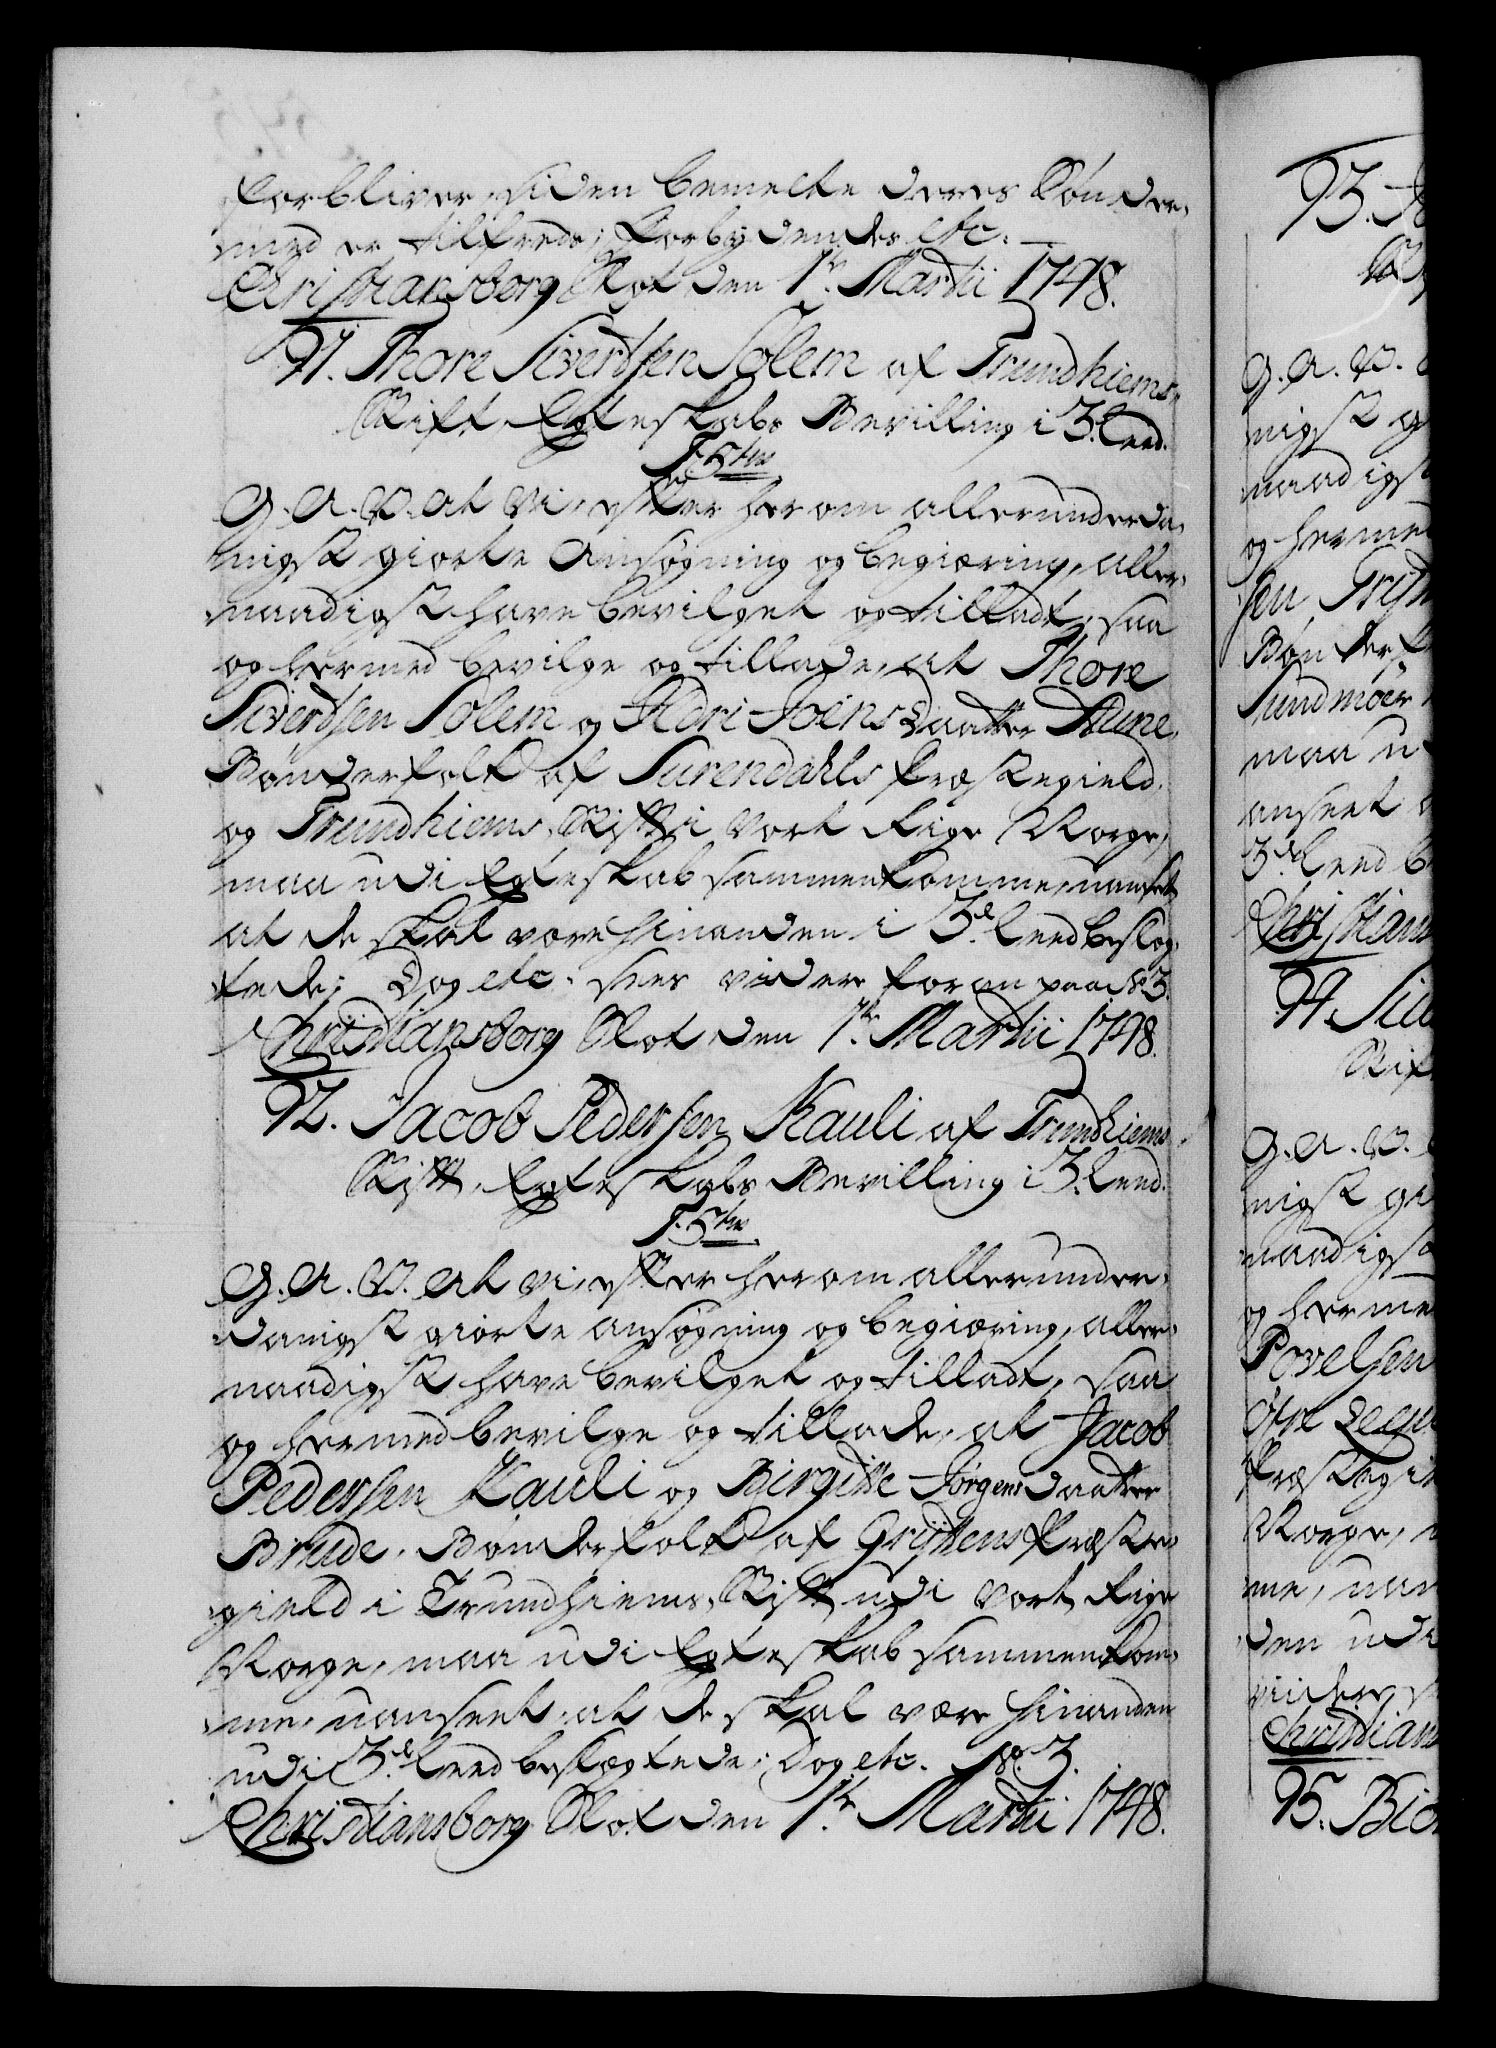 forbliver, siden bemelte deres Sön der-
med er tilfreds; Forbydendes etc.
Christiansborg Slot den 1te Martii 1748.
91. Thore Sivertsen Solem af Trundhiems
Stift, Egteskabs Bevilling i 3. Leed.
F. 5tus
G. A. V. at Vi, efter herom allerunderda-
nigst giorte Ansøgning og begiæring, aller-
naadigst have bevilget og tilladt, saa
og hermed bevilge og tillade, at Thore
Sivertsen Solem og Ildri Joens Daatter Aune,
Bønderfolk af Surendahls Præstegield
og Trundhiems Stift i Vort Rige Norge,
maa udi Egteskab sammenkomme, uanseet
at de skal være hinanden i 3die Leed beslæg-
tede; Dog etc. sees videre foran paa No 3.
Christiansborg Slot den 1te Martii 1748.
92. Jacob Pedersen Kauli af Trundhiems
Stift, Egteskabs Bevilling i 3. Leed.
F. 5tus
G. A. V. at Vi, efter herom allerunder-
danigst giorte ansøgning og begiæring, aller-
naadigst have bevilget og tilladt, saa
og hermed bevilge og tillade, at Jacob
Pedersen Kauli og Birgitte Jørgens Daatter
Brude, Bønderfolk af Grÿttens Præste-
gield i Trundhiems Stift udi Vort Rige
Norge, maa udi Egteskab sammenkom-
me, uanseet, at de skal være hinanden
udi 3die Leed beslægtede; Dog etc. No 3.
Christiansborg Slot den 1te Martii 1748.
93.
G. A. V.
nigst
naadigst
og hermed
sen
Bønderf
Sundmöer
maa u
anseet
3die Leed
Christians
94.
Stif
G. A. V.
nigst gi
naadigst
og herme
Povelsen
Præstegi
Norge,
me, uan
den udi
viider
Christians
95.